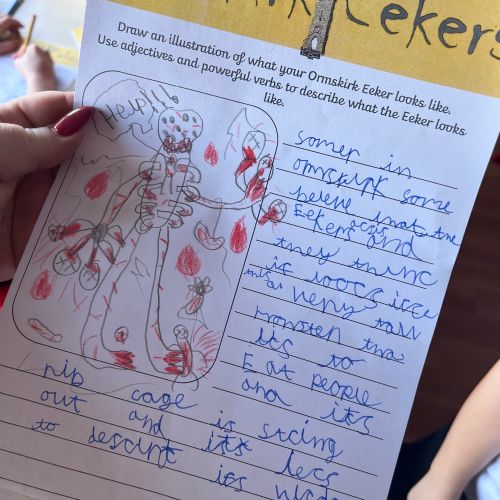 Ormskirk Eekers
Draw an illustration of what your Ormskirk Eeker looks like.
Use adjectives and powerful verbs to describe what the Eeker looks
like.
Help!!!
somer in
omskirk some
beleve that the
Eekers and
they thinc
it loocs like
very tall
monster tha
its to
Eat people
and its
rib cage is sticing
out and its lecs
to descript its